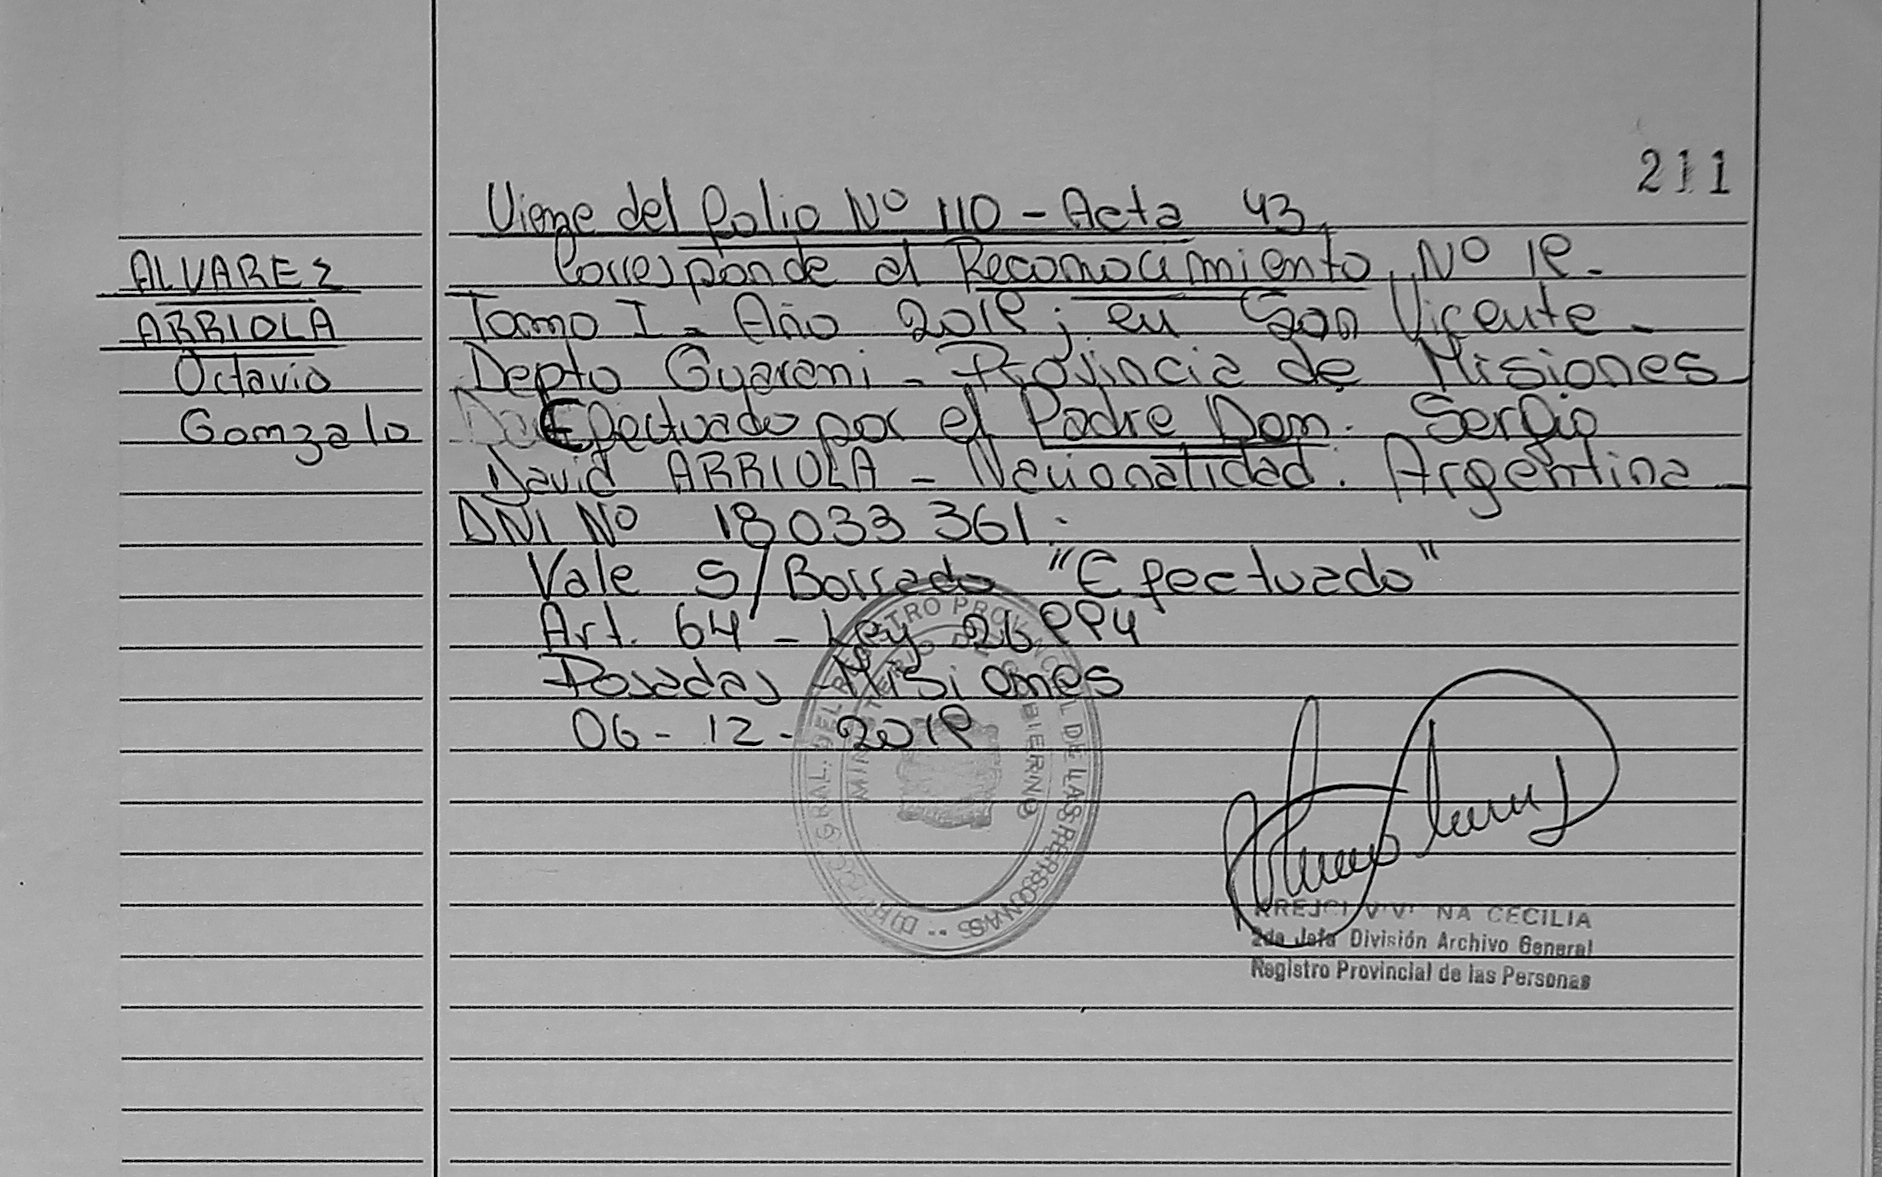 211
Viene del folio Nº 110 - Acta 43.
ALVAREZ
ARRIOLA
Octavio
Gonzalo
Corresponde al Reconocimiento Nº 19.
Tomo I - Año 2019; en San Vicente -
Depto Guarani - Provincia de Misiones
Efectuado por el Padre Don. Sergio
David ARRIOLA - Nacionalidad. Argentina
DNI Nº 18033361.
Vale S/Borrado "Efectuado"
Art. 64 - Ley 26994
Posadas - Misiones
06 - 12 - 2019
GRAL. DEL REGISTRO PROVINCIAL DE LAS PERSONAS
MINISTERIO DE GOBIERNO
CECILIA
2da Jefa División Archivo General
Registro Provincial de las Personas